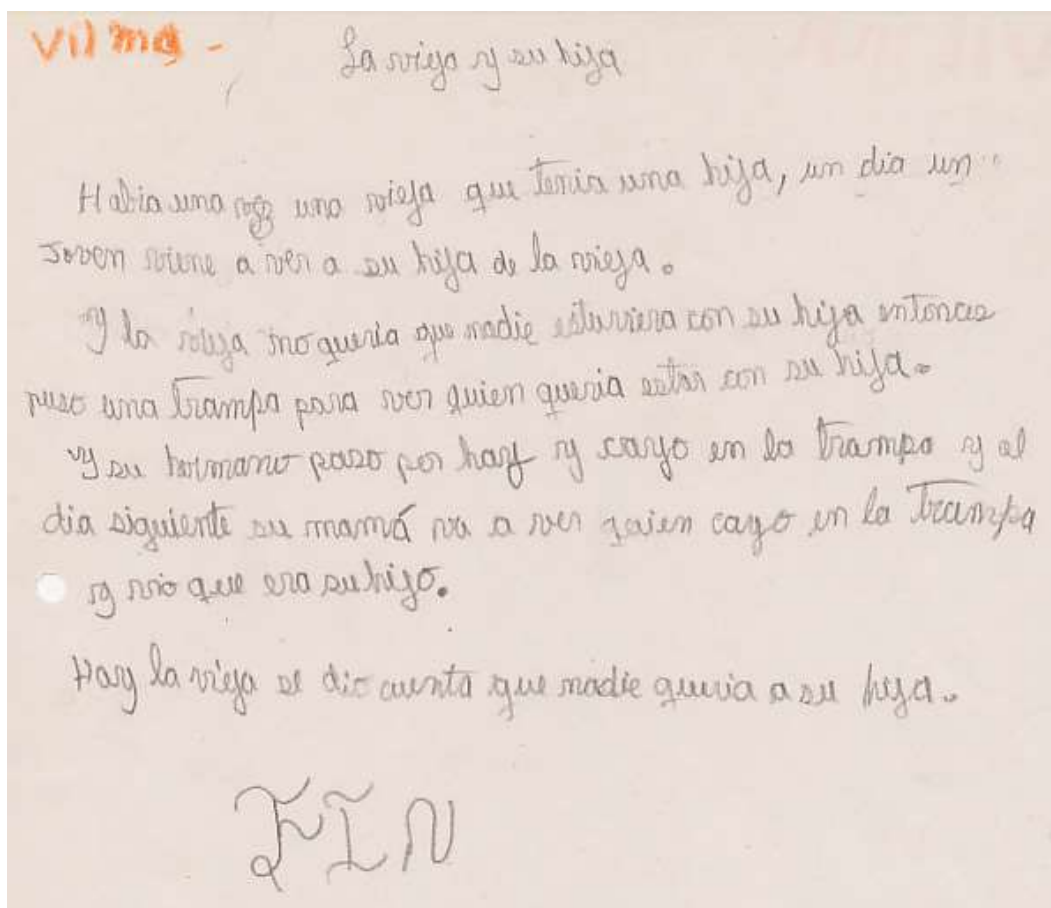 Vilma -
La vieja y su hija
Habia una vez una vieja que tenia una hija, un dia un
Joven viene a ver a su hija de la vieja.
Y la vieja no queria que nadie estuviera con su hija entonces
puso una trampa para ver quien queria estar con su hija.
Y su hermano paso por hay y cayo en la trampa y al
dia siguiente su mamá va a ver quien cayo en la trampa
y vio que era su hijo.
Hay la vieja se dio cuenta que nadie queria a su hija.
FIN